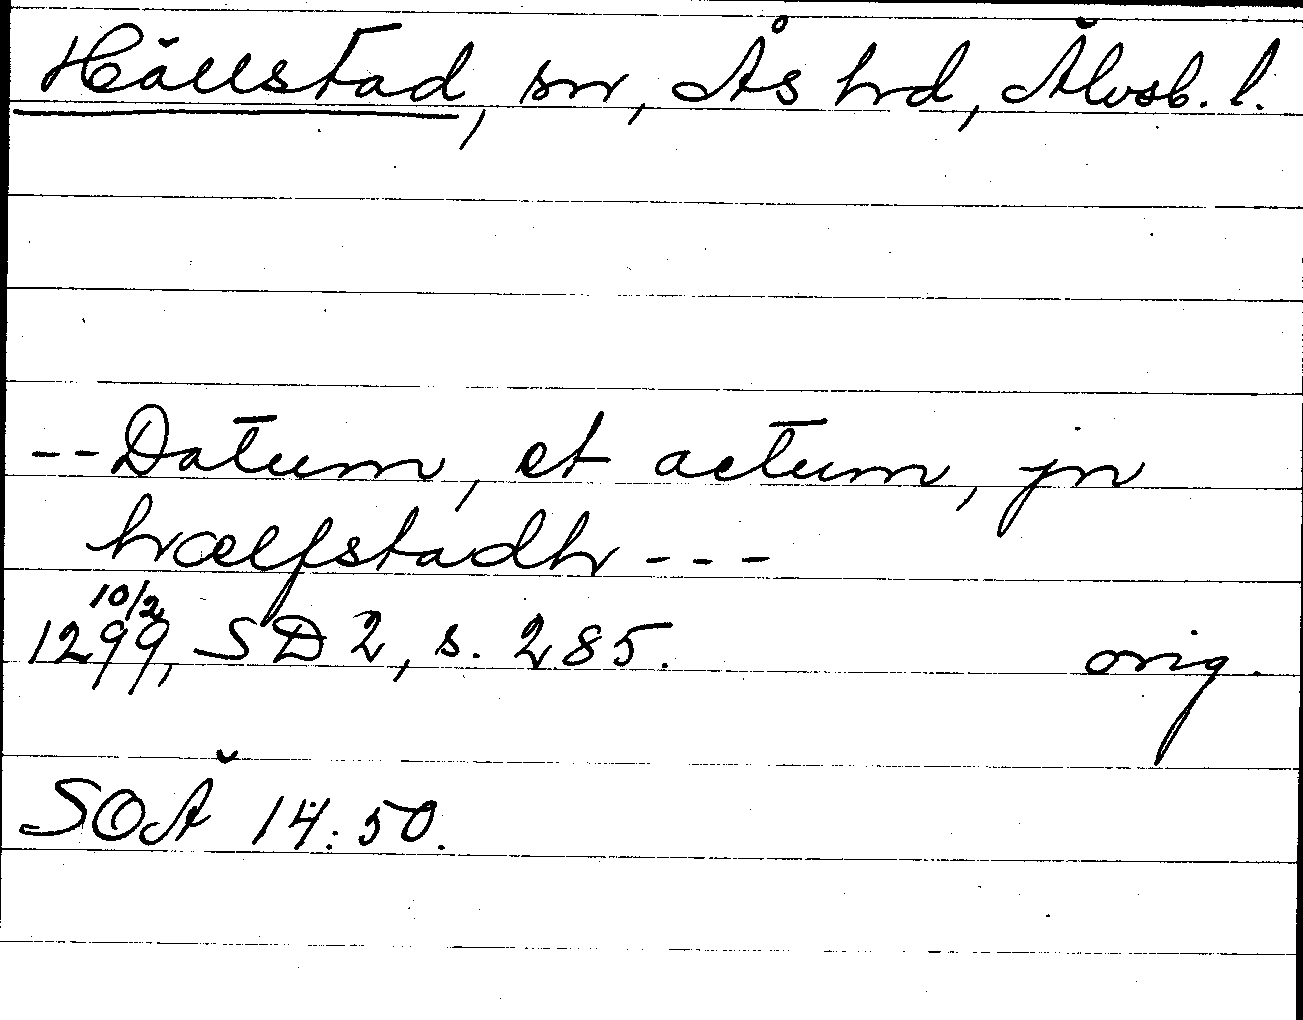 Hällstad, sn, Ås hd, Älvsb. l.
-- Datum, et actum, jn
hælfstadh ---
10/2
1299, SD 2, s. 285. orig.
SOÄ 14: 50.